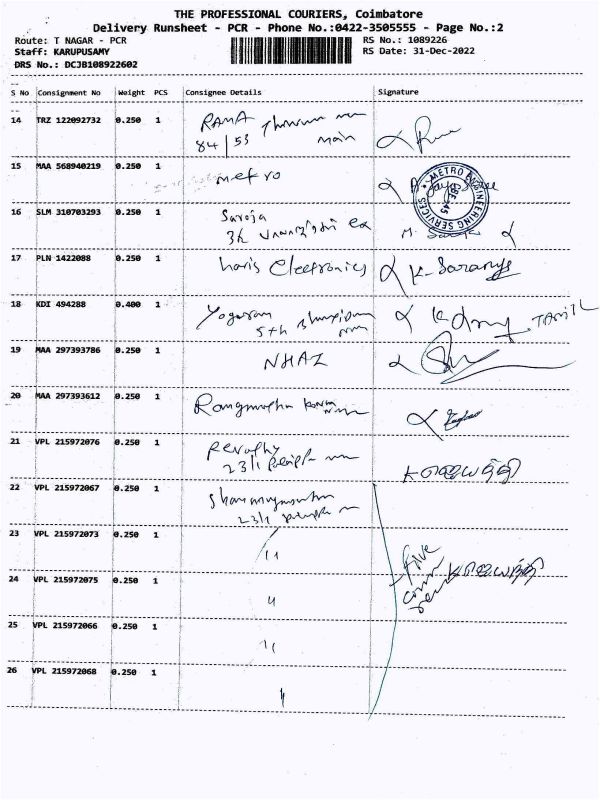 THE PROFESSIONAL COURIERS, Coimbatore
Delivery Runsheet - PCR - Phone No.:0422-3505555 - Page No.:2
Route: T NAGAR - PCR RS No.: 1089226
Staff: KARUPUSAMY RS Date: 31-Dec-2022
DRS No.: DCJB108922602
S No Consignment No Weight PCS Consignee Details Signature
14 TRZ 122092732 0.250 1 RAMA
84/53 main
15 MAA 568940219 0.250 1 metro
METRO ENGINEERING SERVICES
CBE-45
16 SLM 310703293 0.250 1 Saroja
17 PLN 1422088 0.250 1 haris Electronics K. Saranya
18 KDI 494288 0.400 1 Yoguram
5th TAMIL
19 MAA 297393786 0.250 1 NHAZ
20 MAA 297393612 0.250 1
21 VPL 215972076 0.250 1 Revathy
23/1
22 VPL 215972067 0.250 1
23/1
23 VPL 215972073 0.250 1 11
Five
24 VPL 215972075 0.250 1 4
25 VPL 215972066 0.250 1 11
26 VPL 215972068 0.250 1